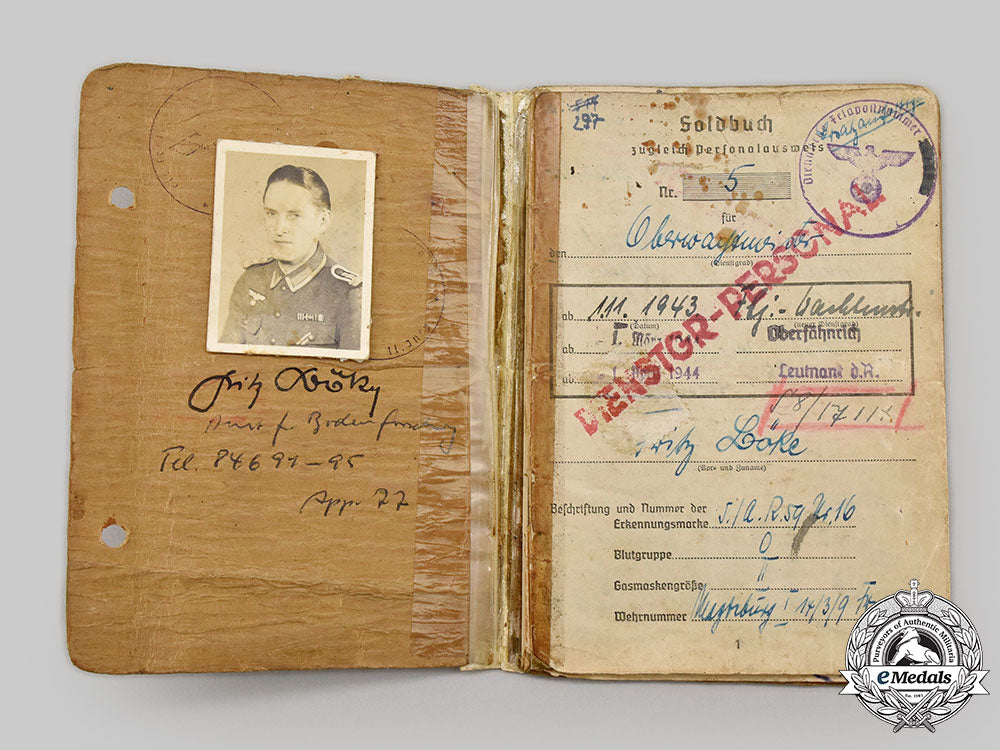 Fritz Böke
Amt f. Bodenforschung
Tel. 84691-95
App. 77
297
Soldbuch
zugleich Personalausweis
Nr. 5
für
den Oberwachtmeister
(Dienstgrad)
ab 1.11.1943
(Datum) (neuer Dienstgrad)
ab 1. März 1944 Oberfähnrich
ab 1. 1944 Leutnant d.R.
DIENSTGR-PERSONAL
Fritz Böke
(Vor- und Zuname)
Beschriftung und Nummer der
Erkennungsmarke 5./A.R.59 Nr. 16
Blutgruppe 0
Gasmaskengröße II
Wehrnummer Magdeburg I 14/3/9
1
Feldpostnummer
Purveyors of Authentic Militaria
eMedals